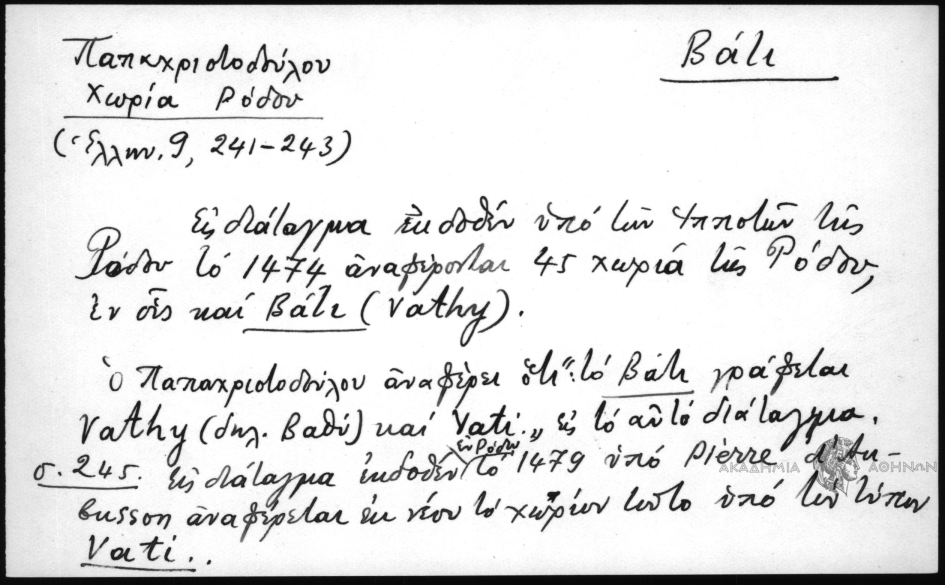 Παπαχριστοδούλου
Βάτι
Χωρία Ρόδου
(Ἑλλην. 9, 241-243)
Εἰς διάταγμα ἐκδοθέν ὑπό τῶν Ἱπποτῶν τῆς
Ρόδου τό 1474 ἀναφέρονται 45 χωριά τῆς Ρόδου,
ἐν οἷς καί Βάτι (Vathy).
Ὁ Παπαχριστοδούλου ἀναφέρει ὅτι "τό Βάτι γράφεται
Vathy (δηλ. Βαθύ) καί Vati" εἰς τό αὐτό διάταγμα.
ἐν Ρόδῳ
σ. 245. Εἰς διάταγμα ἐκδοθέν τό 1479 ὑπό Pierre d'Au-
busson ἀναφέρεται ἐκ νέου τό χωρίον τοῦτο ὑπό τόν τύπον
Vati.
ΑΚΑΔΗΜΙΑ ΑΘΗΝΩΝ